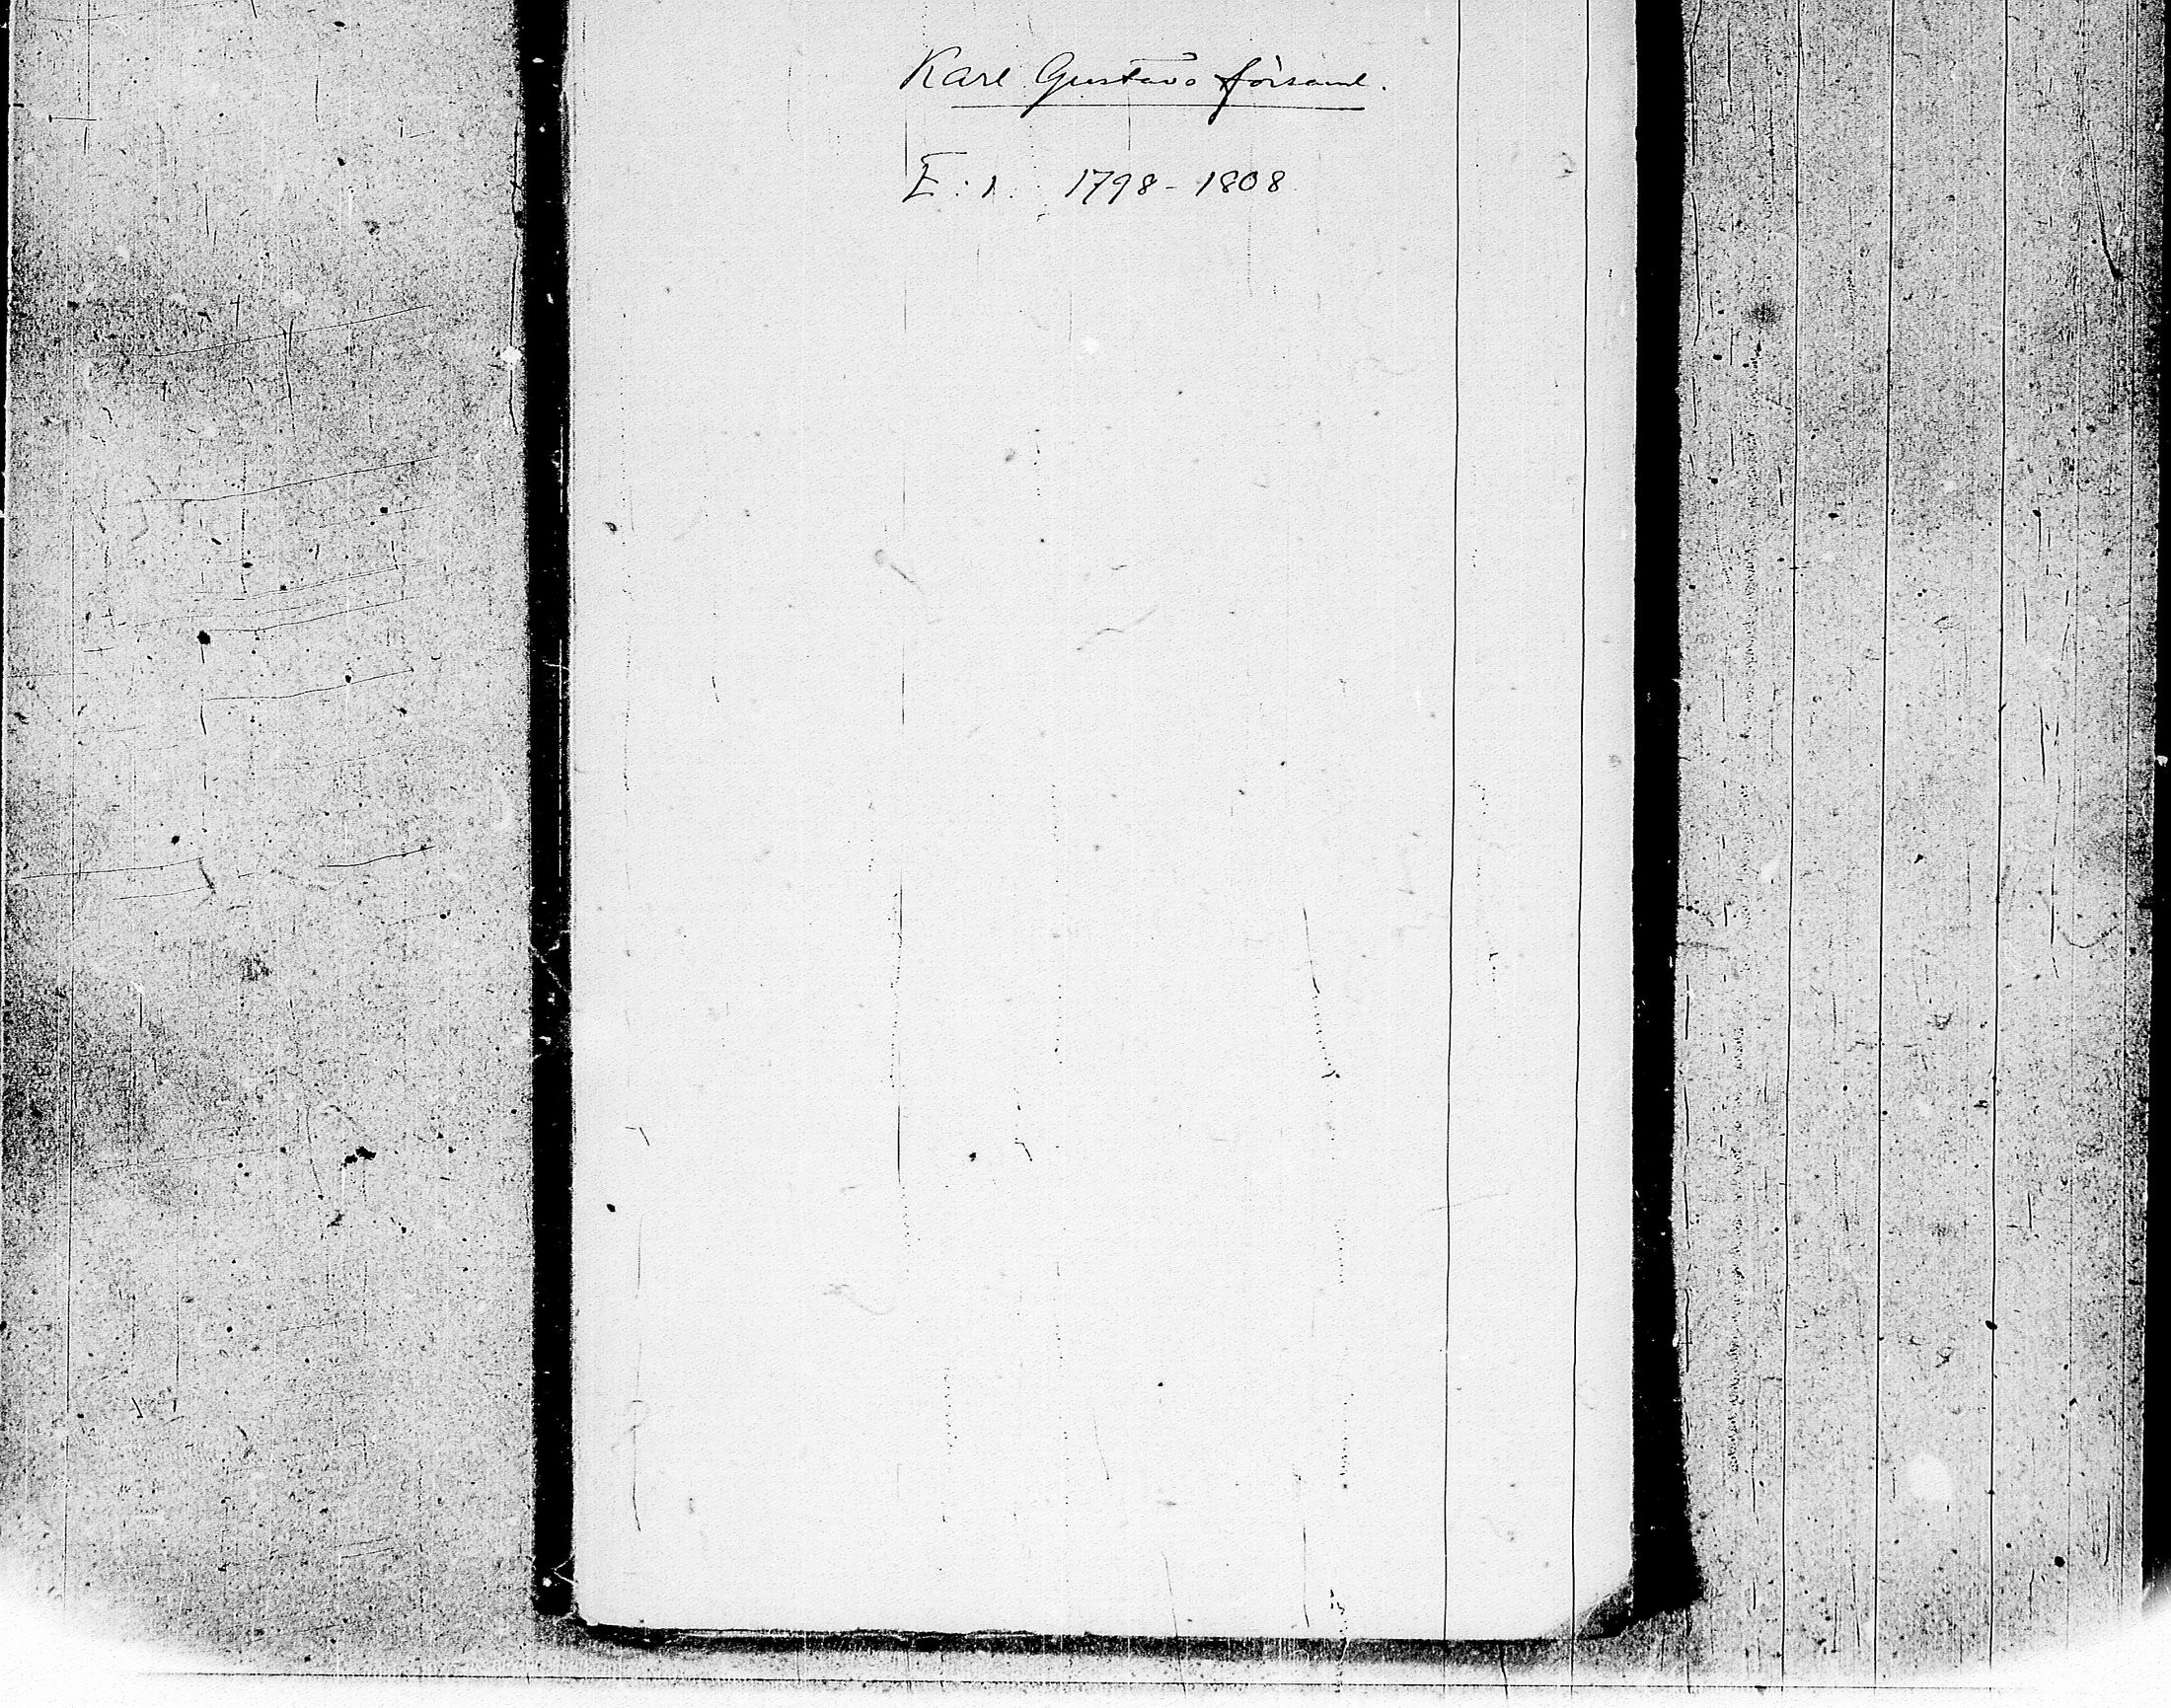 Karl Gustavs församl.
E: 1. 1798-1808